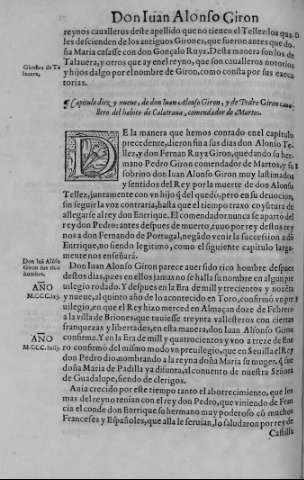 Don Iuan Alonso Giron
reynos caualleros deste apellido que no tienen el Tellez: los qua
les descienden de los antiguos Girones, que fueron antes que do-
ña Maria casasse con don Gonçalo Ruyz. Desta manera son los de
Talauera, y otros que ay enel reyno, que son caualleros notorios
y hijos dalgo por el nombre de Giron, como consta por sus execu
torias.
Girones de Ta
lauera.
¶ Capitulo diez y nueue, de don Iuan Alonso Giron, y de Pedro Giron caua-
llero del habito de Calatraua, comendador de Martos.
DE la manera que hemos contado en el capitulo
precedente, dieron fin a sus dias don Alonso Te-
llez, y don Fernan Ruyz Giron, quedando su her-
mano Pedro Giron comendador de Martos, y su
sobrino don Iuan Alonso Giron muy lastimados
y sentidos del Rey por la muerte de don Alonso
Tellez, juntamente con vn hijo q̃l del quedo, pero en su deuocion,
sin seguir la voz contraria, hasta que el tiempo traxo coyũtura de
allegarse al rey don Enrrique. El comendador nunca se apartó del
rey don Pedro: antes despues de muerto, tuuo por rey destos rey
nos a don Fernando de Portugal, negãdo venir la succession a dõ
Enrrique, no siendo legitimo, como el siguiente capitulo larga-
mente nos enseñará.
Don Iuan Alonso Giron parece auer sido rico hombre despues
Don Iuã Alõso
Giron fue rico
hombre.
destos dias, pues en ellos jamas no se halla su nombre en algun pre
uilegio rodado. Y despues en la Era de mil y trezientos y nouēta
AÑO
M.CCC.lxj.
y nueue, al quinto año de lo acontecido en Toro, confirmó vn pre
uilegio, en que el Rey hizo merced en Almaçan doze de Febrero
a la villa de Briones, que tuuiesse treynta vallesteros con ciertas
franquezas y libertades, en esta manera, don Iuan Alfonso Giron
confirma. Y en la Era de mill y quatrocientos y vno a treze de Ene
AÑO
M.CCC.lxiij.
ro confirmó del mismo modo vn preuilegio, que en Seuilla el Rey
don Pedro dio, nombrando a la reyna doña Maria su muger, q̃ fue
doña Maria de Padilla ya difunta, al conuento de nuestra Señora
de Guadalupe, siendo de clerigos.
Auia crecido por este tiempo tanto el aborrecimiento, que los
mas del reyno tenian con el rey don Pedro, que viniendo de Fran
cia el conde don Enrrique su hermano muy poderoso cõ muchos
Franceses y Españoles, que alla le seruian, lo saludaron por rey de
Castilla